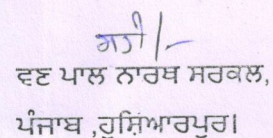 ਸਹੀ/-
ਵਣ ਪਾਲ ਨਾਰਥ ਸਰਕਲ,
ਪੰਜਾਬ ,ਹੁਸ਼ਿਆਰਪੁਰ।